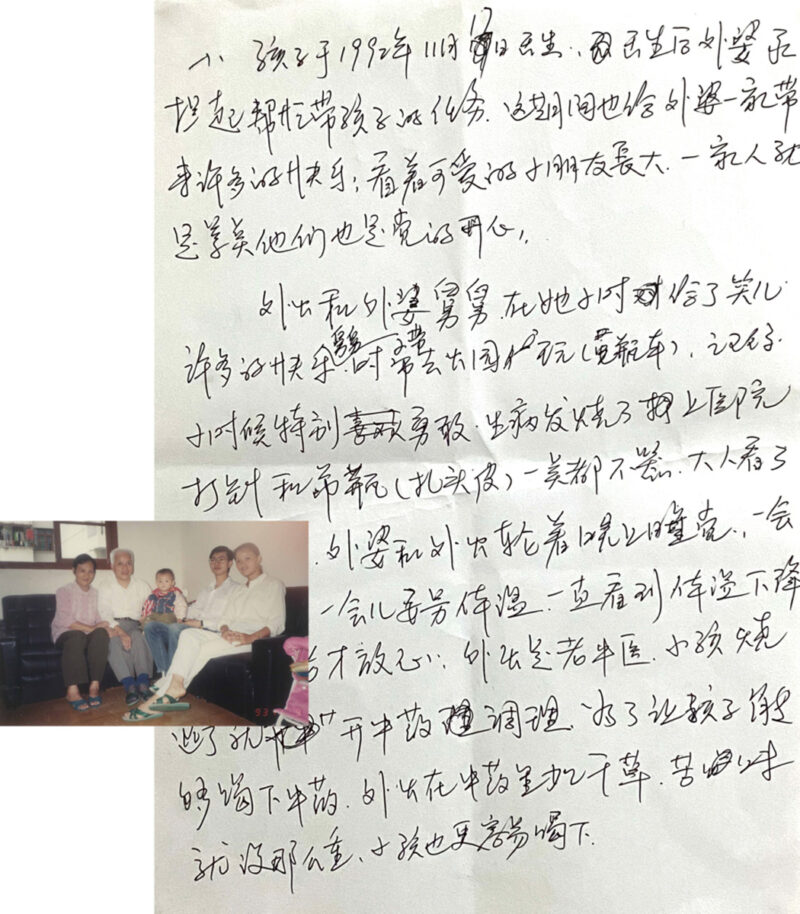 小孩子于1992年11月17日出生,出生后外婆承
担起帮忙带孩子的任务.这期间也给外婆一家带
来许多的快乐;看着可爱的小朋友長大.一家人就
是
他们也是
的开心,
外公和外婆舅舅.在她小时
给了
许多的快乐.舅舅时常带去公园
玩(
车).记得
小时候特别勇敢.生病发烧了
上医院
打针和吊瓶(扎头皮)一
都不哭.大人看了
.外婆和外公轮着晚上睡觉.一会
一会儿要
体温.一直看到体温下降
才放心.外公是老中医.小孩烧
退了就
开中药
调理.为了让孩子能
够喝下中药.外公在中药里加了干草.苦
味
就没那么重.小孩也更容易喝下.
93